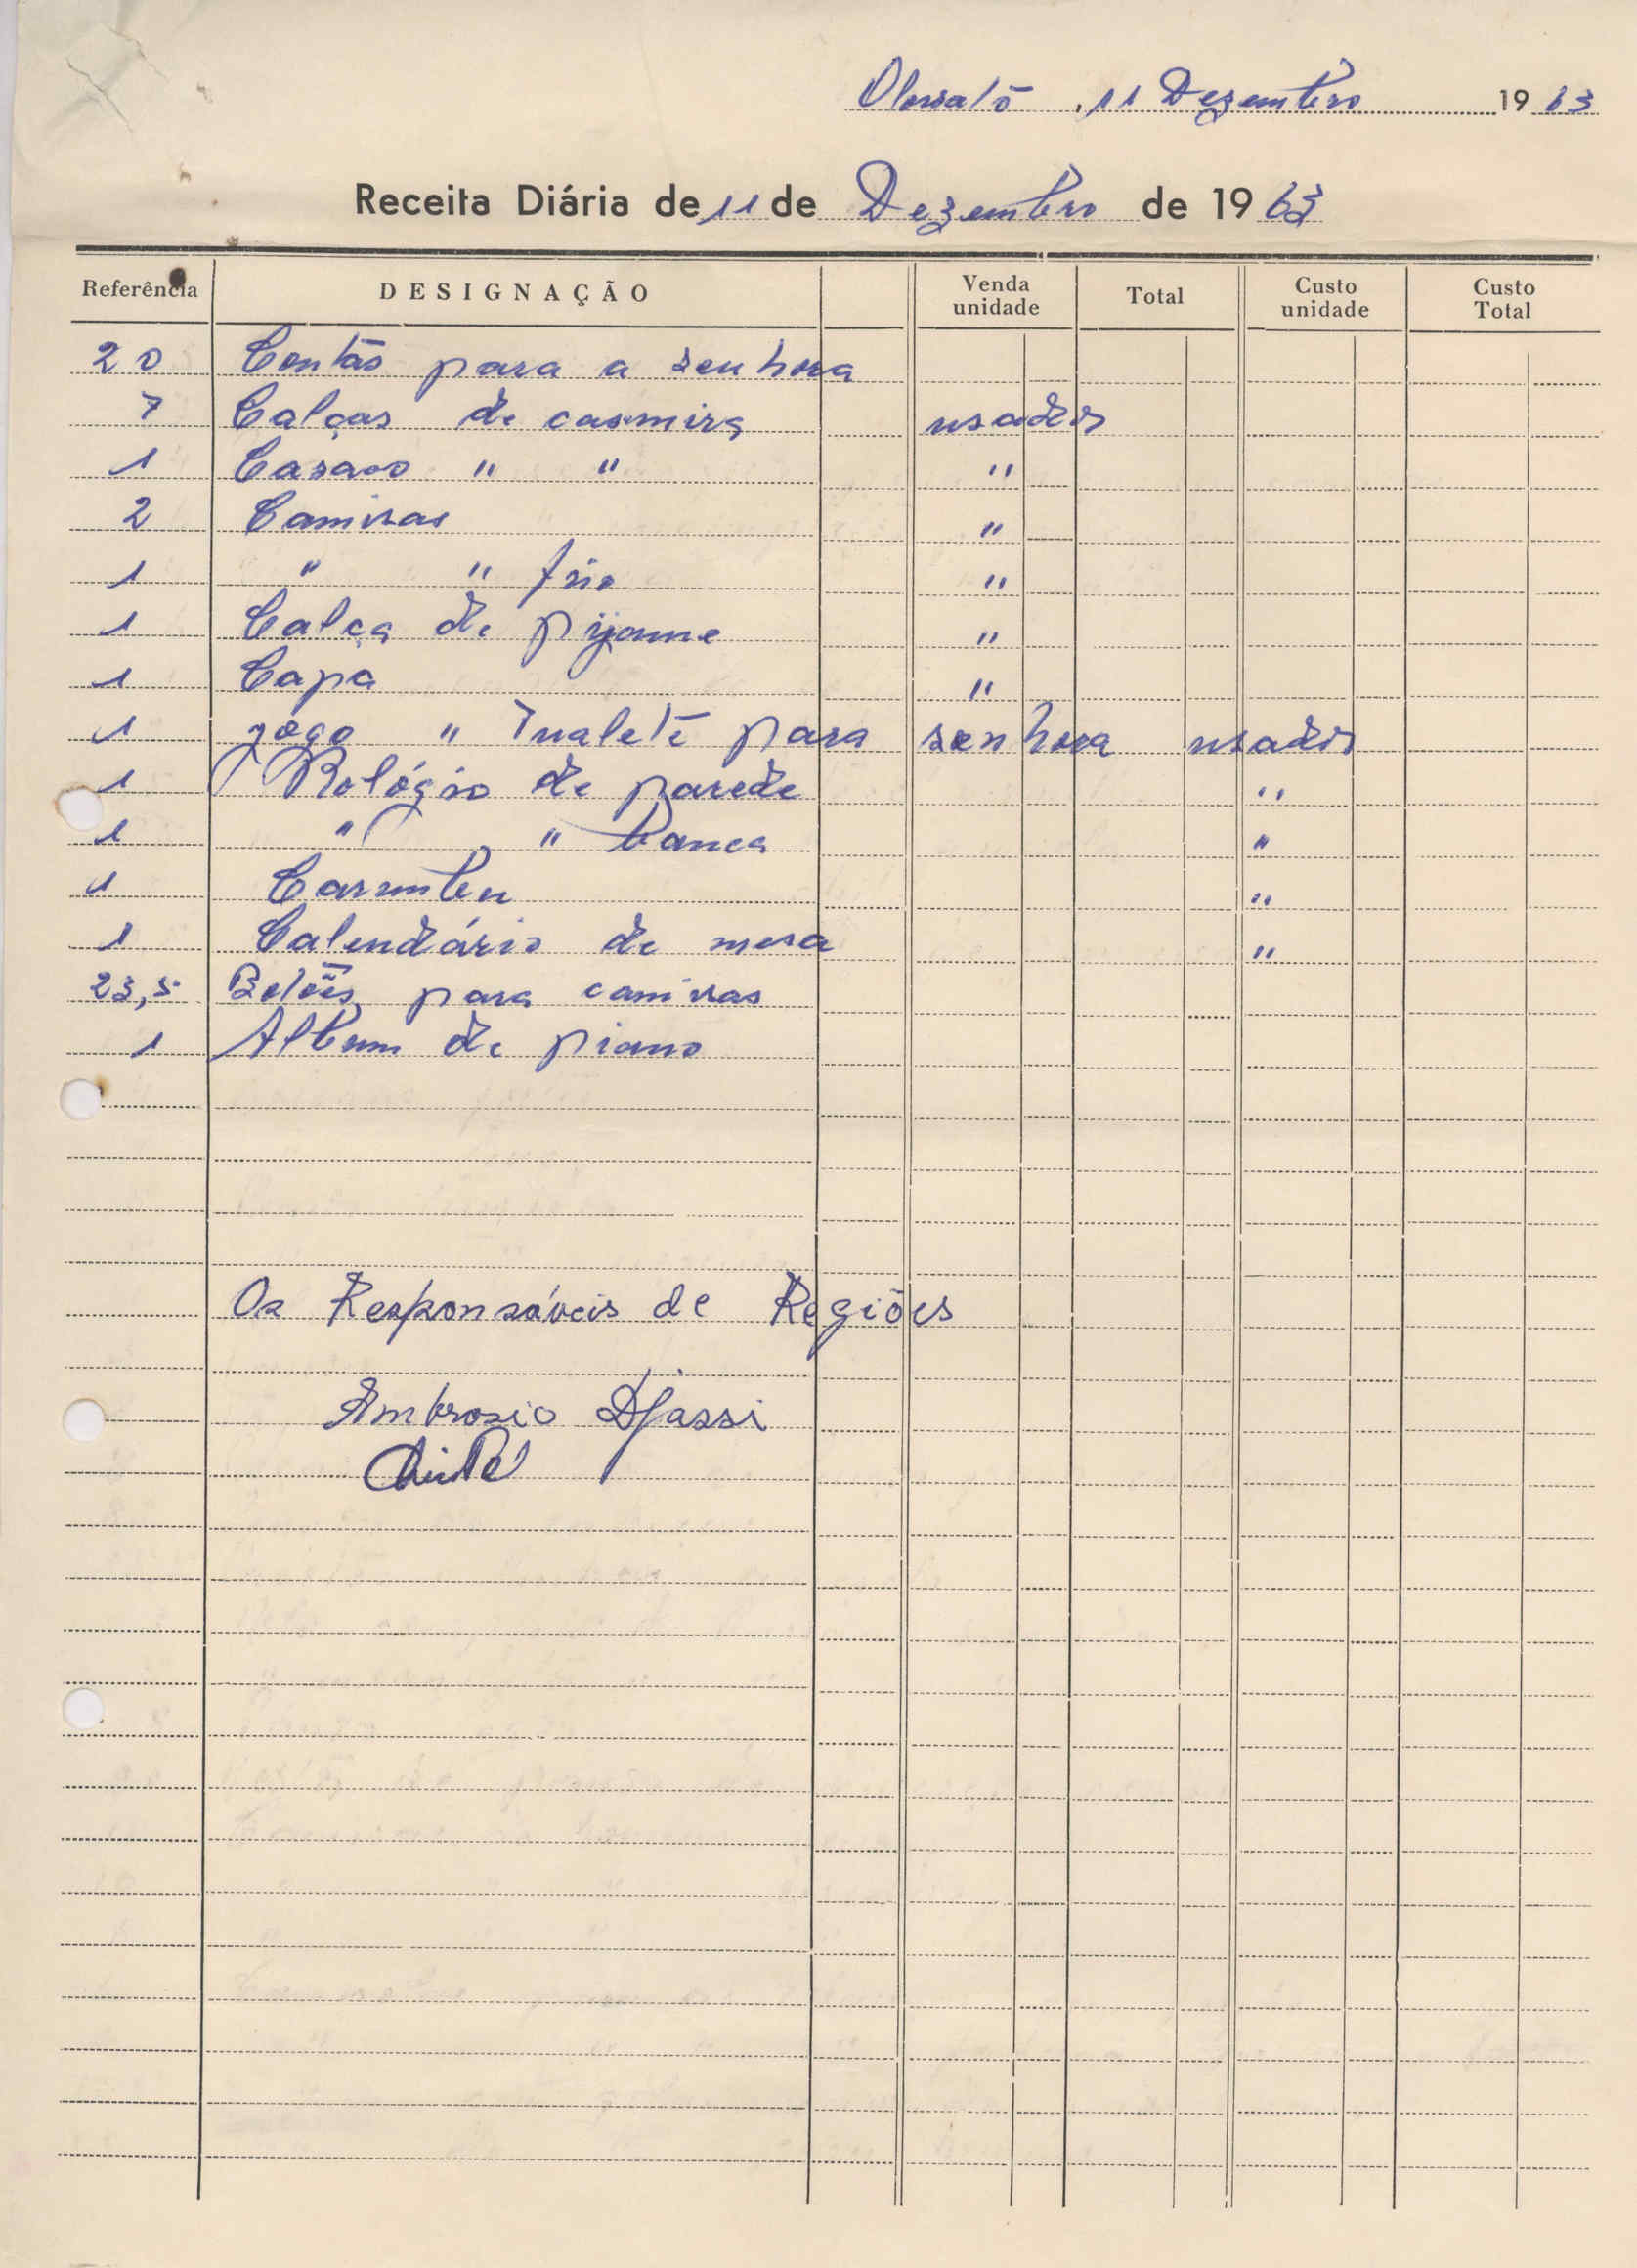 Olossató, 11 Dezembro 1963
Receita Diária de 11 de Dezembro de 1963
Referência DESIGNAÇÃO Venda unidade Total Custo unidade Custo Total
20 Contas para a senhora
7 Calças de casmira usados
1 Casaco " " "
2 Camisas "
1 " " frio "
1 Calça de pijame "
1 Capa "
1 jogo " Tualete para senhora usados
1 Relógio de parede "
1 " " banca "
1 "
1 Calendário de mesa "
23,5 Botões para camisas
1 Album de piano
Os Responsáveis de Regiões
Ambrosio Djassi